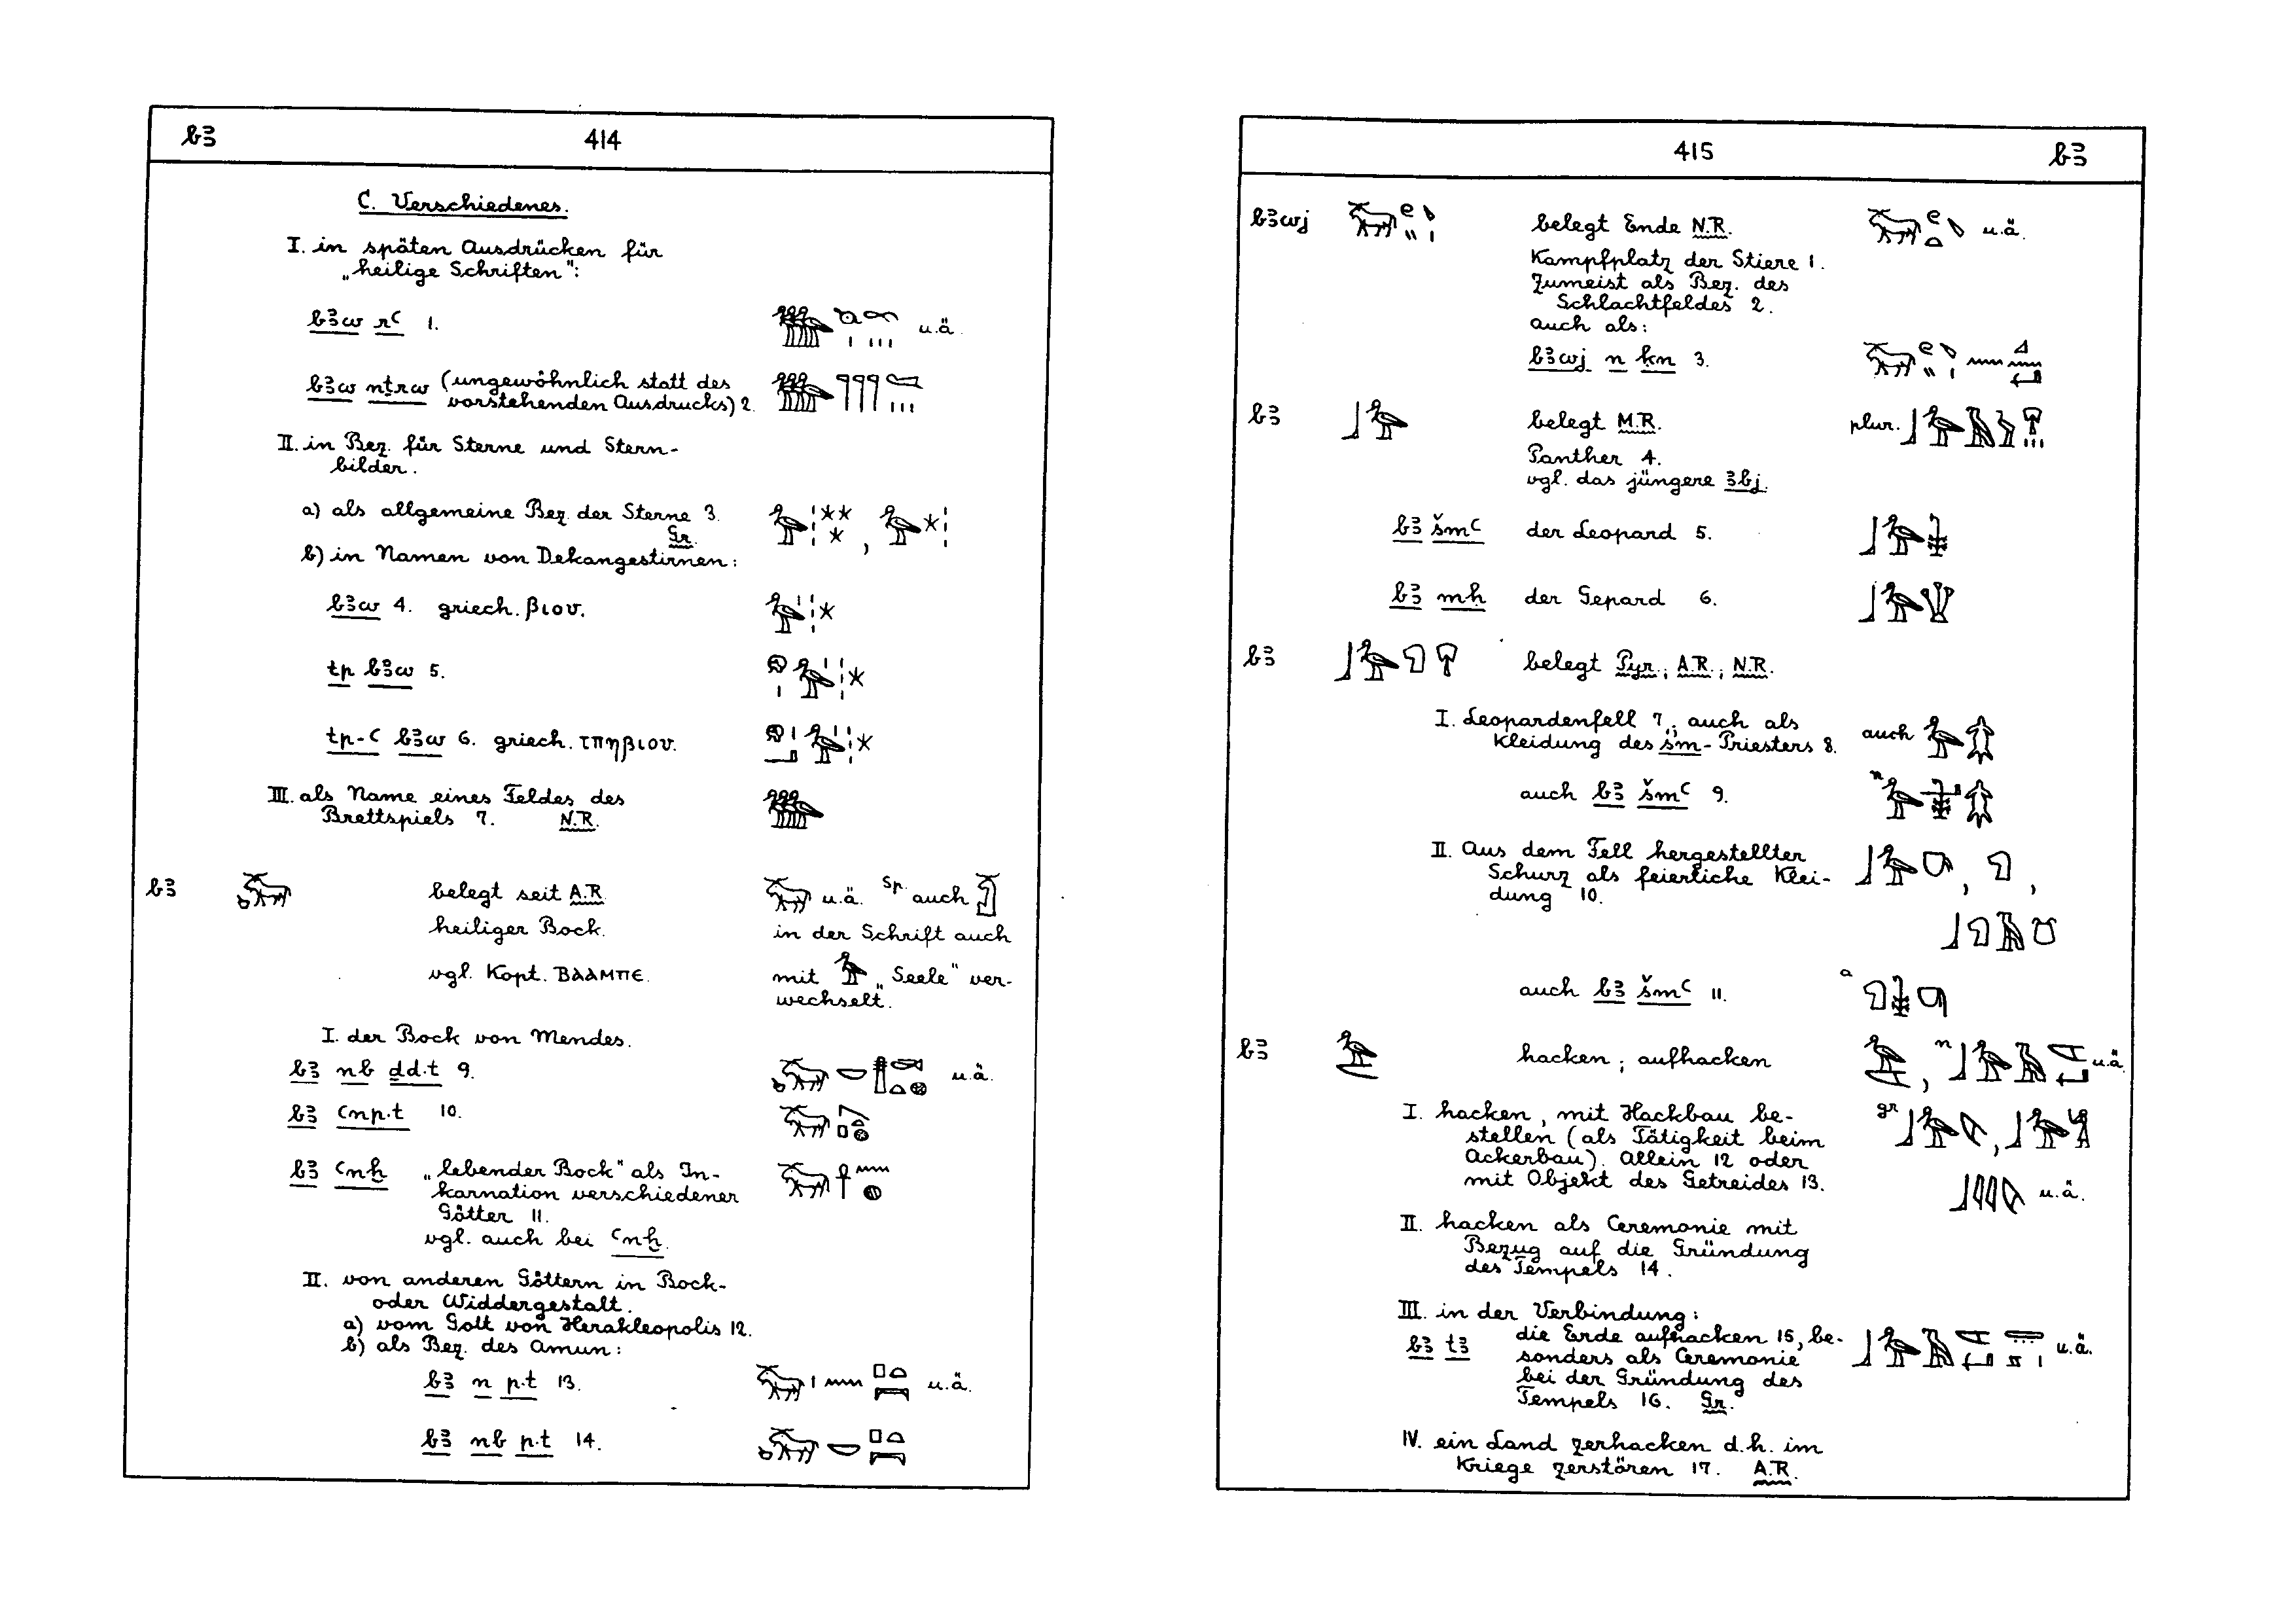 bꜣ 414
C. Verschiedenes.
I. in späten Ausdrücken für
„heilige Schriften":
bꜣw rꜥ 1. u.ä.
bꜣw nṯrw (ungewöhnlich statt des
vorstehenden Ausdrucks) 2.
II. in Bez. für Sterne und Stern-
bilder.
a) als allgemeine Bez. der Sterne 3.
Gr.
b) in Namen von Dekangestirnen:
bꜣw 4. griech. βιου.
tp bꜣw 5.
tp-ꜥ bꜣw 6. griech. τπηβιου.
III. als Name eines Feldes des
Brettspiels 7. N.R.
bꜣ belegt seit A.R. u.ä. Sp. auch
heiliger Bock. in der Schrift auch
vgl. Kopt. ⲂⲀⲀⲘⲠⲈ. mit „Seele" ver-
wechselt.
I. der Bock von Mendes.
bꜣ nb ḏd.t 9. u.ä.
bꜣ ꜥnp.t 10.
bꜣ ꜥnḫ „lebender Bock" als In-
karnation verschiedener
Götter 11.
vgl. auch bei ꜥnḫ.
II. von anderen Göttern in Bock-
oder Widdergestalt.
a) vom Gott von Herakleopolis 12.
b) als Bez. des Amun:
bꜣ n p.t 13. u.ä.
bꜣ nb p.t 14.
415 bꜣ
bꜣwj belegt Ende N.R. u.ä.
Kampfplatz der Stiere 1.
Zumeist als Bez. des
Schlachtfeldes 2.
auch als:
bꜣwj n ḳn 3.
bꜣ belegt M.R. plur.
Panther 4.
vgl. das jüngere ꜣbj.
bꜣ šmꜥ der Leopard 5.
bꜣ mḥ der Gepard 6.
bꜣ belegt Pyr.; A.R.; N.R.
I. Leopardenfell 7; auch als auch
Kleidung des śm-Priesters 8.
auch bꜣ šmꜥ 9. n
II. Aus dem Fell hergestellter
Schurz als feierliche Klei-
dung 10.
auch bꜣ šmꜥ 11. a
bꜣ hacken; aufhacken n u.ä.
I. hacken, mit Hackbau be- gr
stellen (als Tätigkeit beim
Ackerbau). Allein 12 oder
mit Objekt des Getreides 13. u.ä.
II. hacken als Ceremonie mit
Bezug auf die Gründung
des Tempels 14.
III. in der Verbindung:
bꜣ tꜣ die Erde aufhacken 15, be- u.ä.
sonders als Ceremonie
bei der Gründung des
Tempels 16. Gr.
IV. ein Land zerhacken d.h. im
Kriege zerstören 17. A.R.